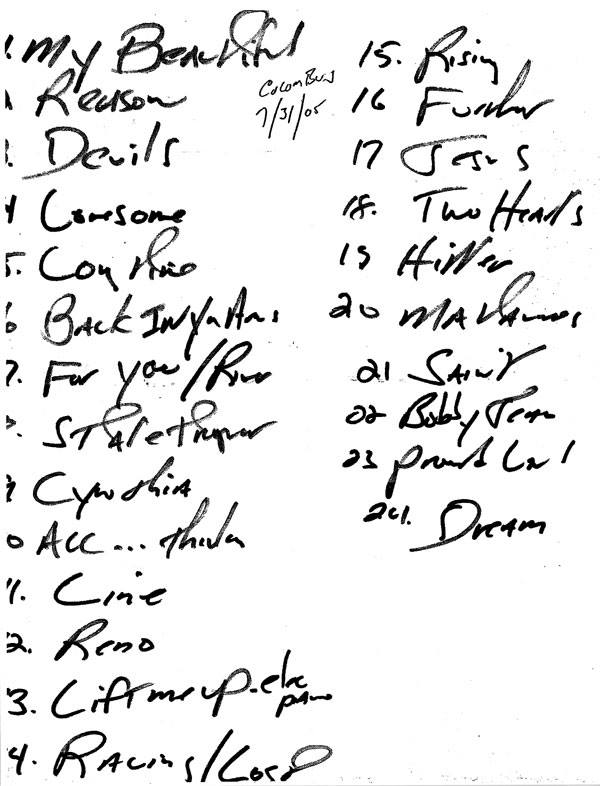 1. My Beautiful
Reason
Devils
4 Lonesome
5. Long Time
6 Back In Yr Arms
7. For You/River
State Trooper
Cynthia
0 All... thinkn
1. Line
2. Reno
3. Lift me up - elec
piano
4. Racing/Losd
ColomBus
7/31/05
15. Rising
16 Further
17 Jesus
18. Two Hearts
19 Hitter
20 Matamoros
21 Saint
22 Bobby Jean
23 promisd Lan!
24. Dream